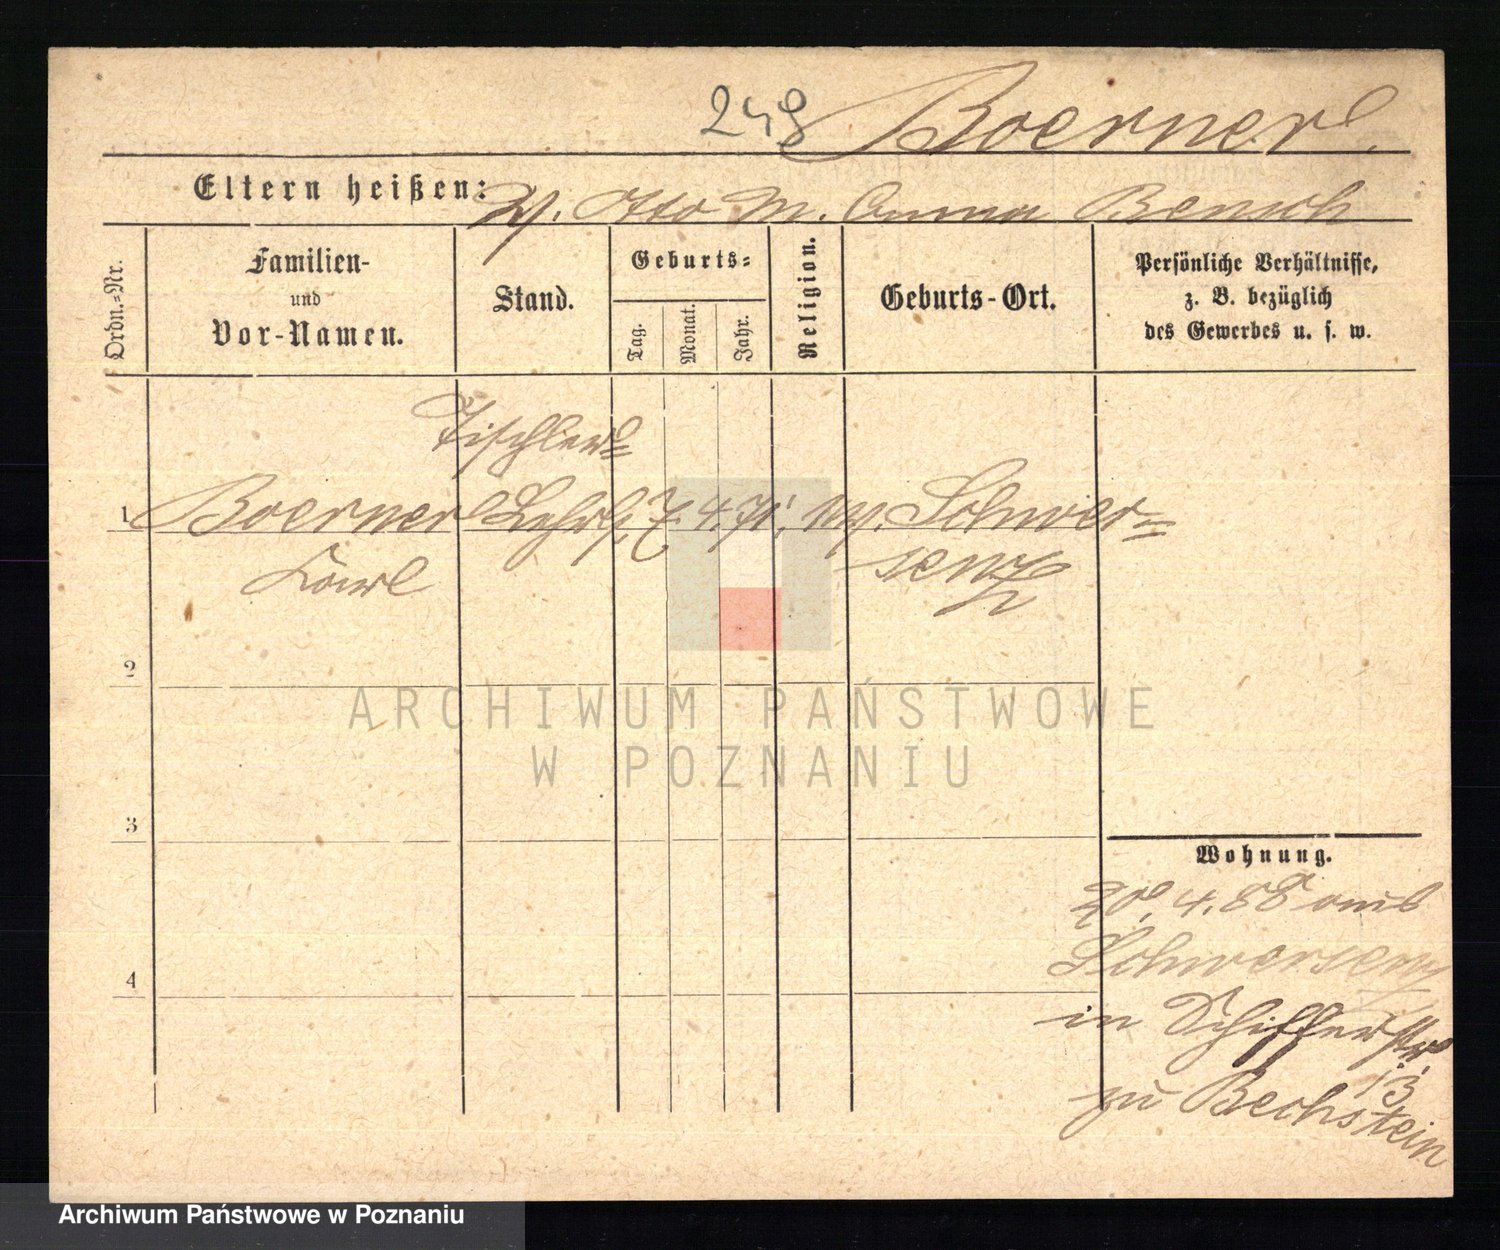 248 Boerner.
Eltern heißen: V. Otto M. Anna Bensch
Ordn.-Nr.
Familien-
und
Vor-Namen.
Stand.
Geburts-
Tag.
Monat.
Jahr.
Religion.
Geburts-Ort.
Persönliche Verhältnisse,
z. B. bezüglich
des Gewerbes u. s. w.
Tischler-
1 Boerner Lehrl. 7. 4. 71. ev. Schwer-
Karl senz
2
3
4
Wohnung.
20. 4. 88 aus
Schwersenz
in Schifferstr.
13
zu Bechstein
ARCHIWUM PAŃSTWOWE
W POZNANIU
Archiwum Państwowe w Poznaniu